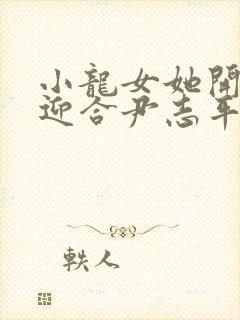 小龍女她開
迎合尹志平
軼人